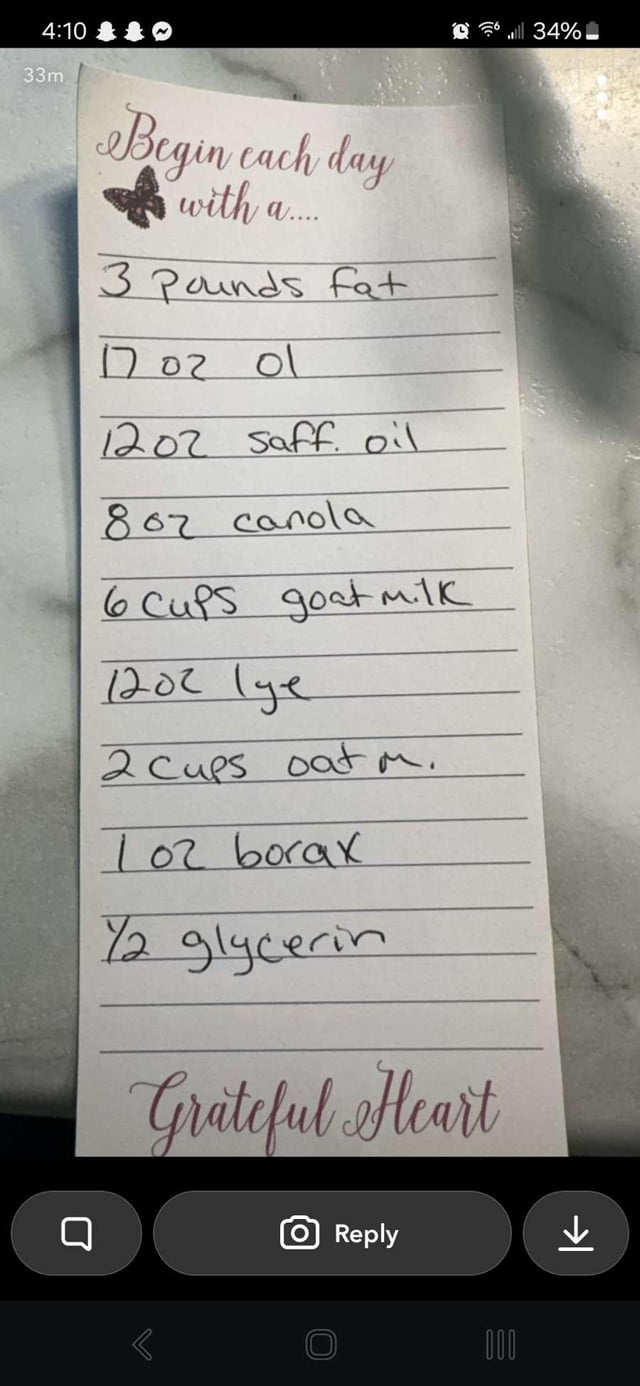 4:10
34%
33m
Begin each day
with a....
3 Pounds fat
17 oz ol
12oz saff. oil
8 oz canola
6 cups goat milk
12oz lye
2 cups oat m.
1 oz borax
1/2 glycerin
Grateful Heart
Reply